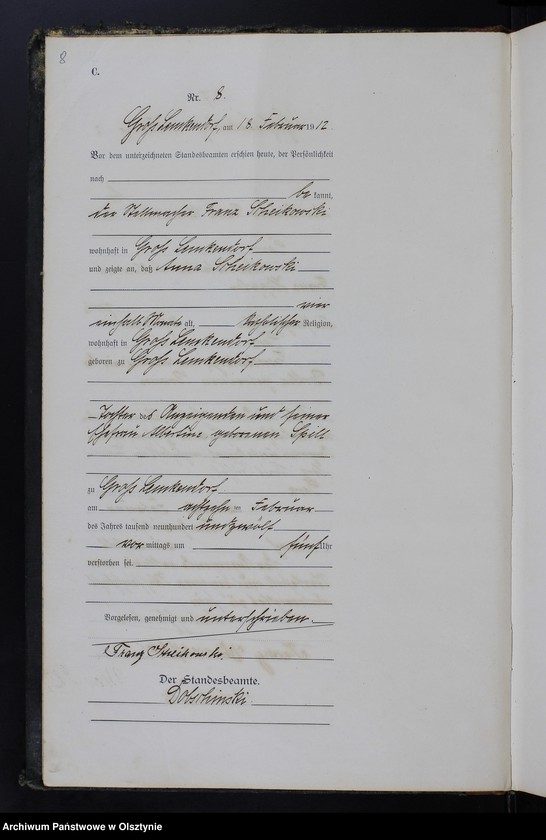 8
C.
Nr. 8.
Groß Lemkendorf, am 18. Februar 1912.
Vor dem unterzeichneten Standesbeamten erschien heute, der Persönlichkeit
nach
be kannt,
der Stellmacher Franz
wohnhaft in Groß Lemkendorf
und zeigte an, daß Anna
vier
einhalb Monate alt, katholischer Religion,
wohnhaft in Groß Lemkendorf
geboren zu Groß Lemkendorf
Tochter des Anzeigenden und seiner
Ehefrau Albertine, geborenen Spill
zu Groß Lemkendorf
am achtzehn ten Februar
des Jahres tausend neunhundert und zwölf
vor mittags um fünf Uhr
verstorben sei.
Vorgelesen, genehmigt und unterschrieben.
Franz
Der Standesbeamte.
Dobschinski
Archiwum Państwowe w Olsztynie